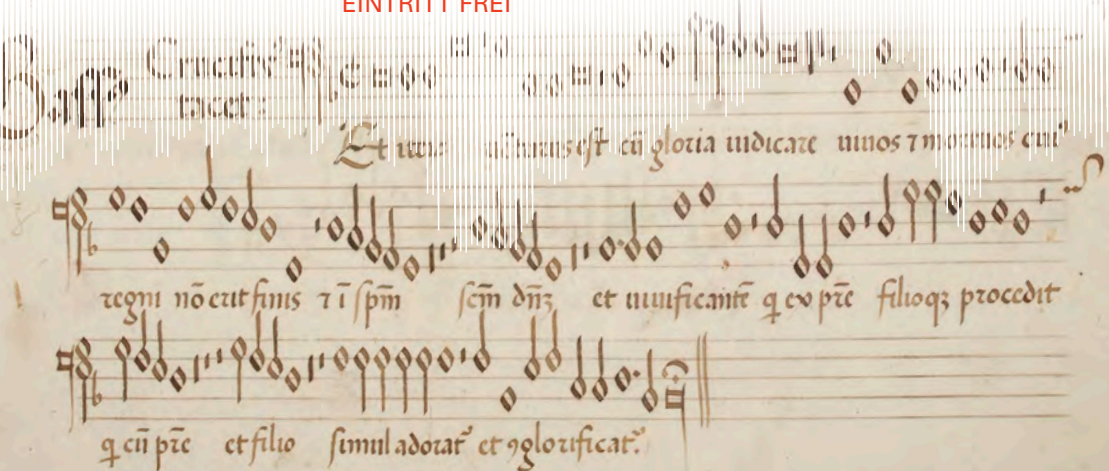 EINTRITT FREI
Bassus Crucifix⁹
tacet:
Et est cū gloria iudicare uiuos ⁊ mortuos cui⁹
regni nō erit finis ⁊ ī sp̄m sc̄m dn̄ꝫ et uiuificantē q̄ ex pr̄e filioqꝫ procedit
q̄ cū pr̄e et filio simul adorat᷑ et ꝯglorificat᷑.